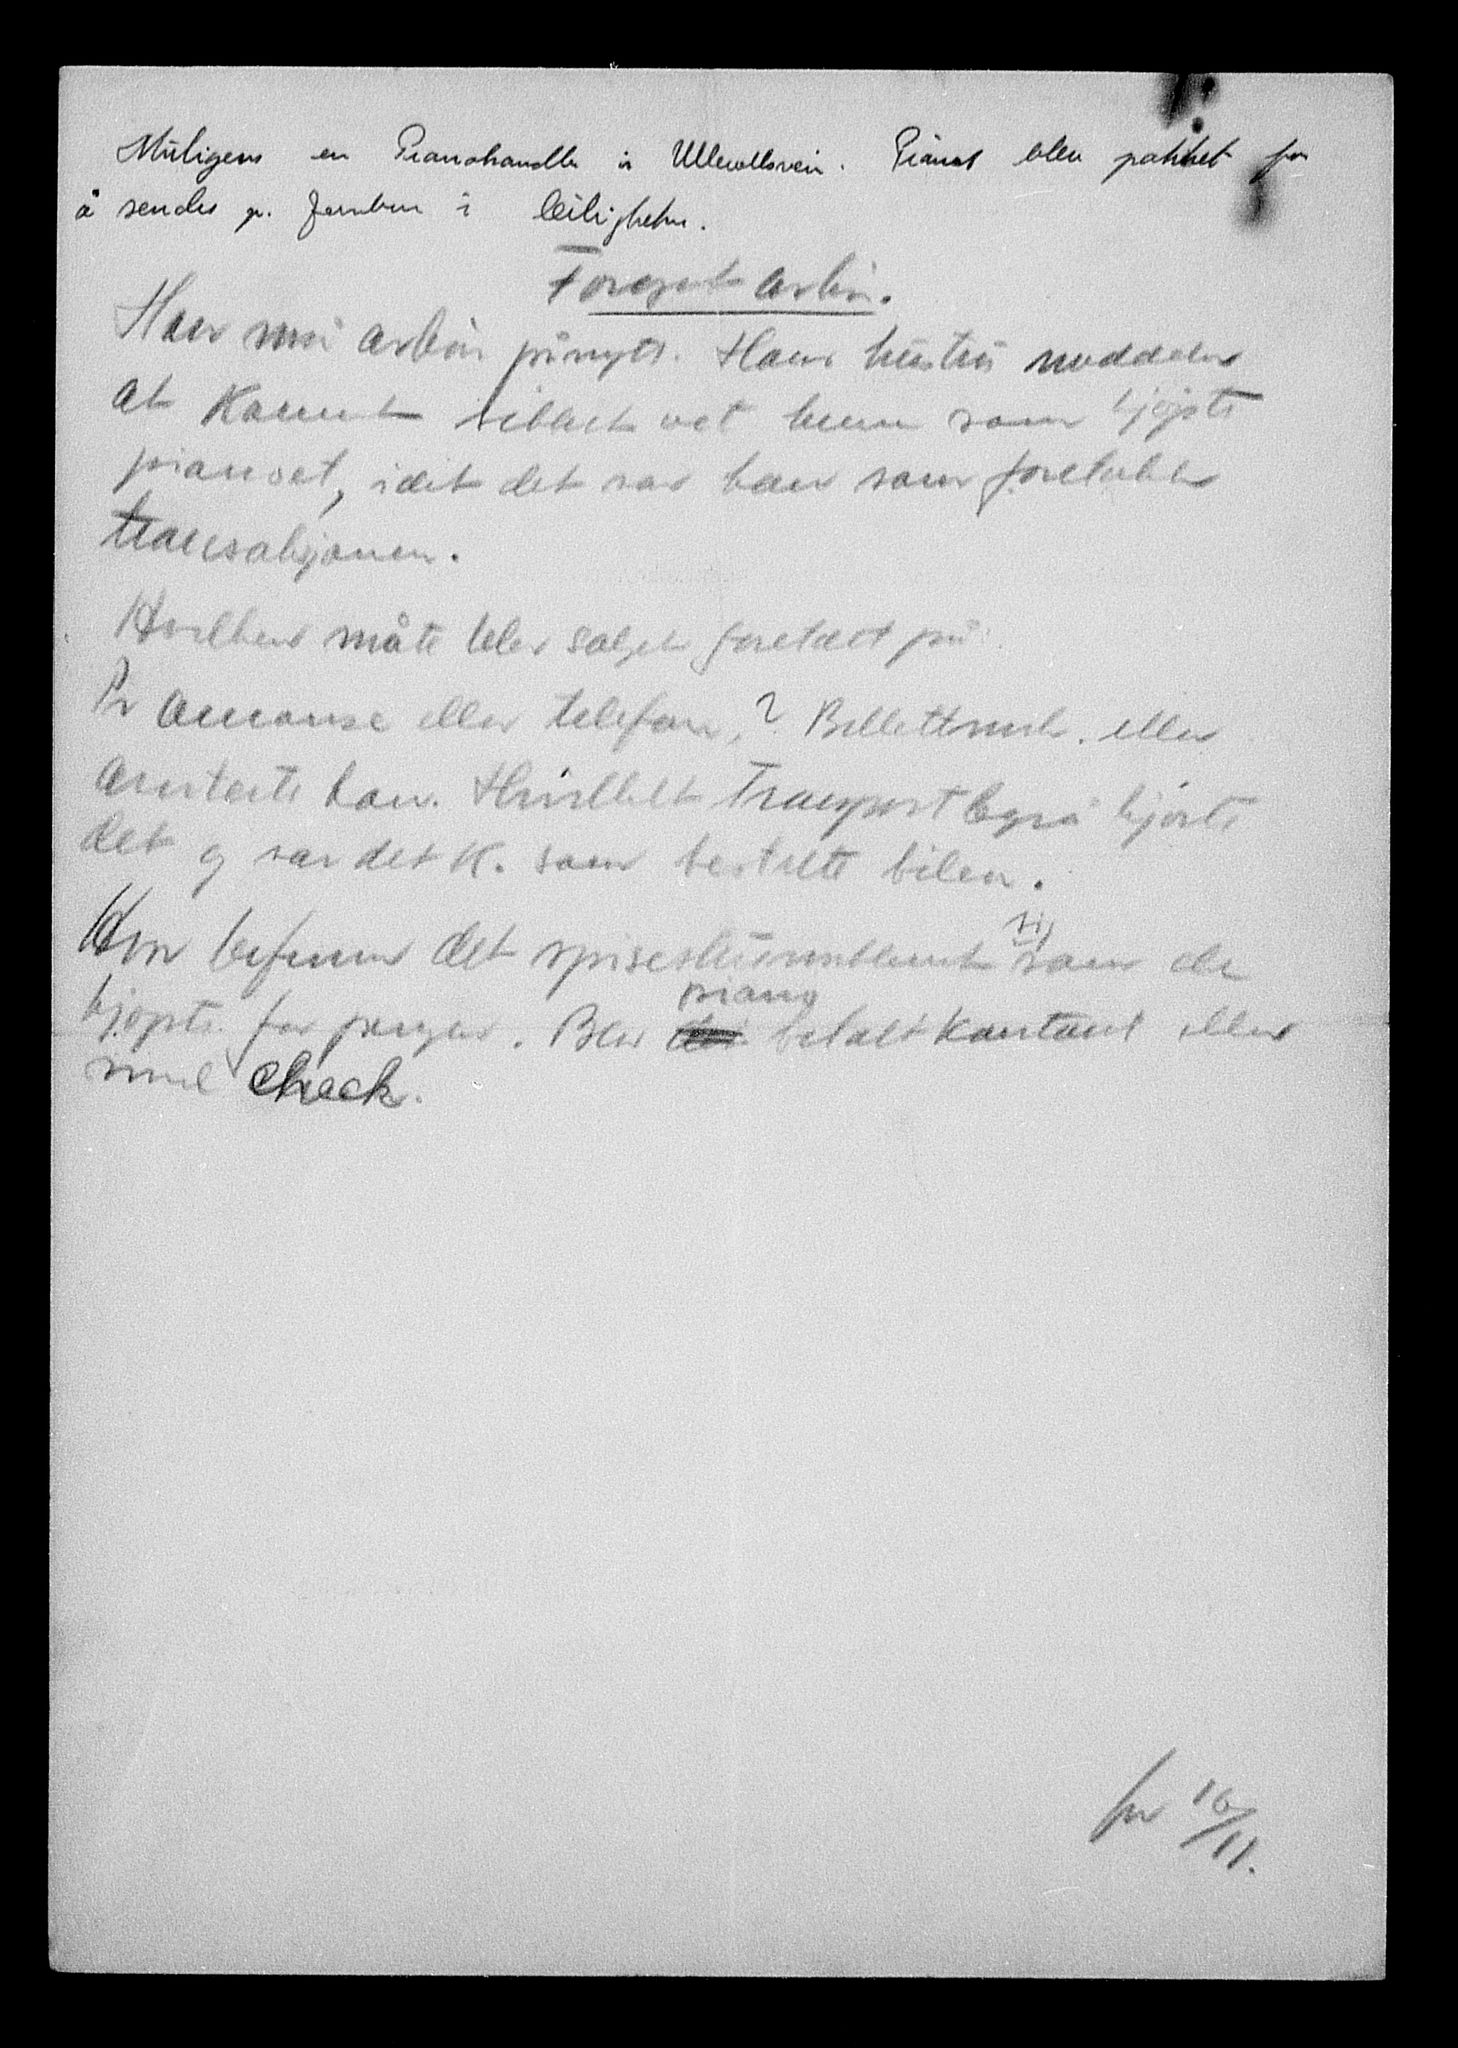 Muligens en Pianohandler i Ullevollsvein. Pianot blev pakket for
å sendes pr. Jernban i leiligheten.
Foresp.
Han må påny. Hans hustru meddeler
at Kamut sikkert vet hvem som kjøpte
pianoet, idet det var han som foretok
transaksjonen.
Hvilken måte blev salget foretatt på
Pr annonse eller telefon,? Billettmrk. eller
han. Hvilket Transportbyrå kjørte
det og var det K. som bestilte bilen.
Hvor befinner det spisestuemøblement som de
kjøpte for penger. Blev piano betalt kontant eller
med check.
16/11.